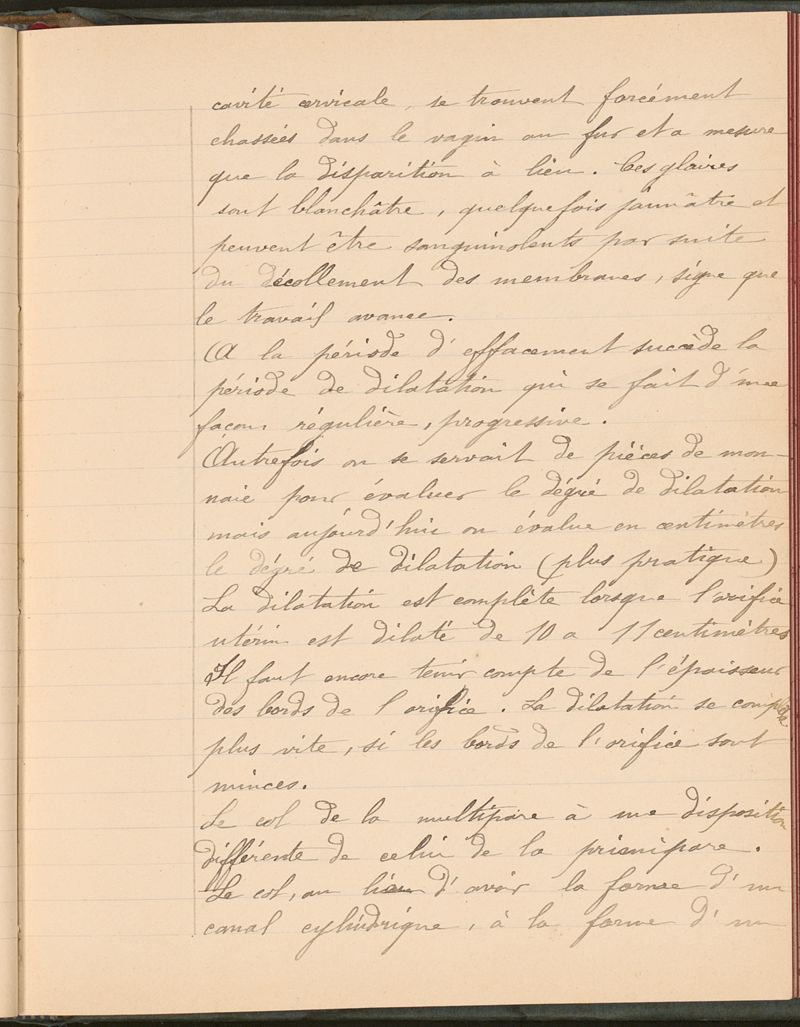 cavité cervicale, se trouvent forcément
chassées dans le vagin au fur et a mesure
que la disparition à lieu. Ces glaires
sont blanchâtre, quelquefois jaunâtre et
peuvent être sanguinolents par suite
du décollement des membranes, signe que
le travail avance.
A la période d'effacement succède la
période de dilatation qui se fait d'une
façon régulière, progressive.
Autrefois on se servait de pièces de mon-
naie pour évaluer le dégré de dilatation
mais aujourd'hui on évalue en centimètres
le dégré de dilatation (plus pratique)
La dilatation est complète lorsque l'orifice
utérin est dilaté de 10 a 11 centimètres
Il faut encore tenir compte de l'épaisseur
des bords de l'orifice. La dilatation se complète
plus vite, si les bords de l'orifice sont
minces.
Le col de la multipare à une disposition
différente de celui de la primipare.
Le col, au lieu d'avoir la forme d'un
canal cylindrique, à la forme d'un